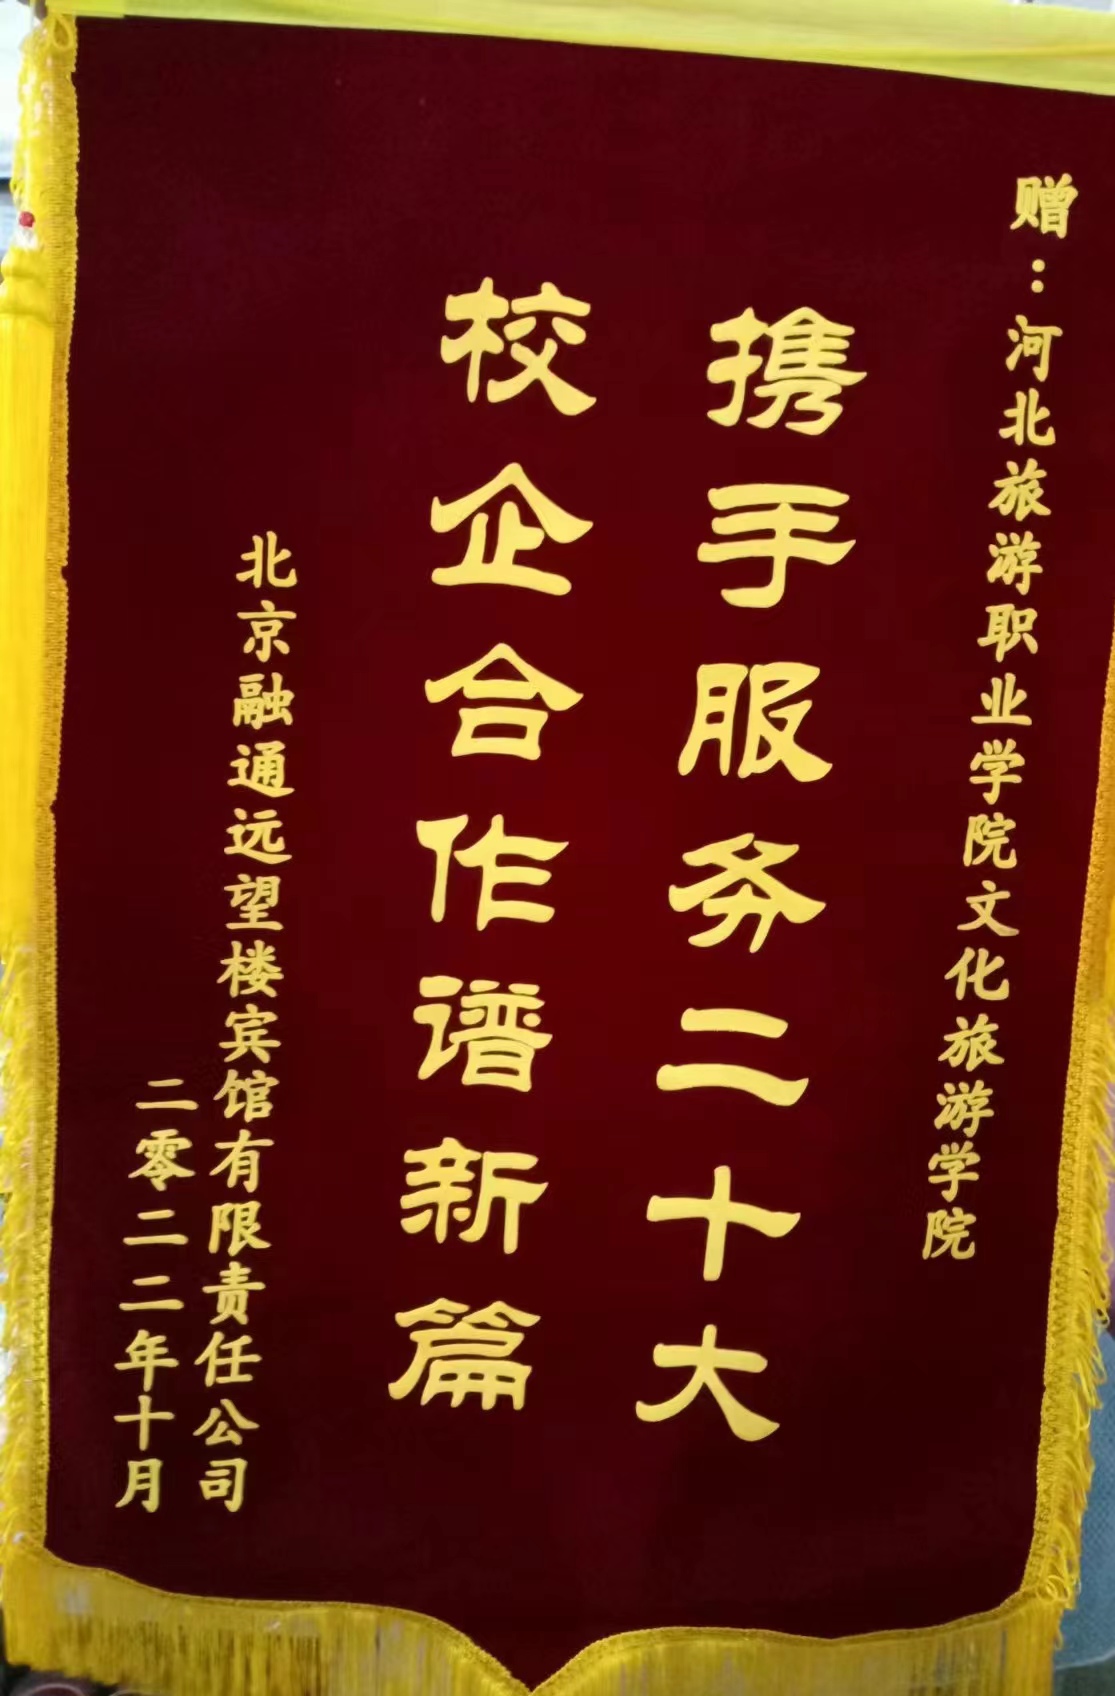 赠：河北旅游职业学院文化旅游学院
携手服务二十大
校企合作谱新篇
北京融通远望楼宾馆有限责任公司
二零二二年十月